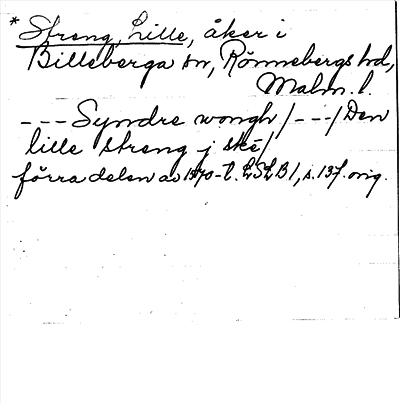 * Streng, Lille, åker i
Billeberga sn, Rönnebergs hd,
Malm. l.
--- Syndre wongh /---/ Den
lille streng j ske/
förra delen av 1570-t. LSLB1, s. 137. orig.